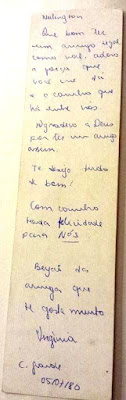 Wellington
Que bom ter
um amigo igual
como você, adoro
a força que
você me dá
e o carinho que
há entre nós.
Agradeço a Deus
por ter um amigo
assim.
Te desejo tudo
de bom!
Com carinho
toda felicidade
para Nós
Beijos da
amiga que
te gosta muito
Virginia
C. Grande
05/01/80